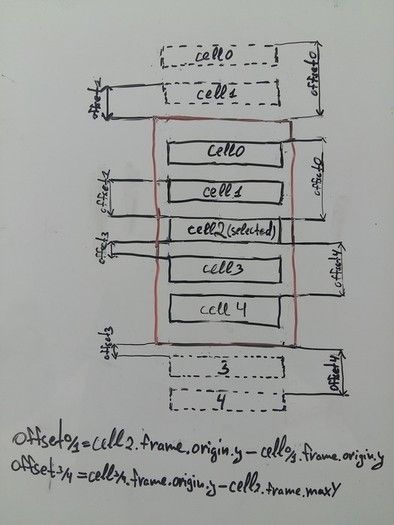 cell0
offset0
cell1
offset1
cell0
offset0
cell1
offset1
cell2(selected)
offset3
cell3
offset4
cell 4
offset3
3
offset4
4
offset0/1=cell2.frame.origin.y-cell0/1.frame.origin.y
offset3/4=cell3/4.frame.origin.y-cell2.frame.maxY